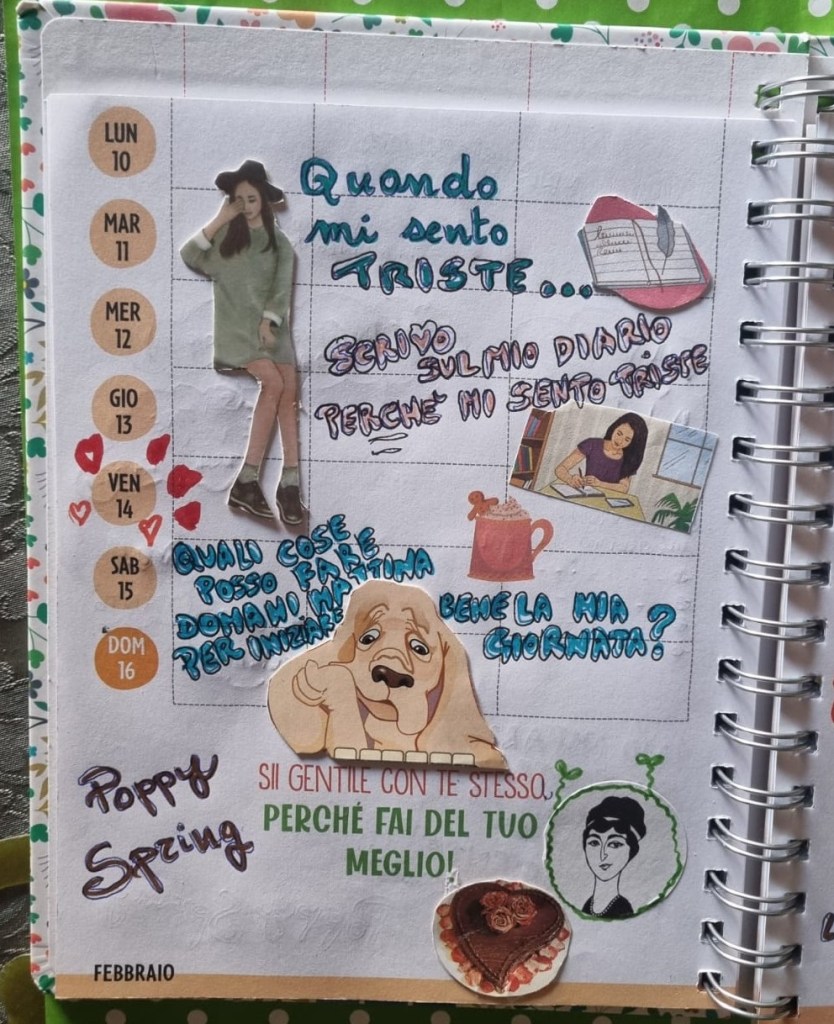 LUN
10
MAR
11
MER
12
GIO
13
VEN
14
SAB
15
DOM
16
Quando
mi sento
TRISTE...
SCRIVO
SUL MIO DIARIO
PERCHÉ MI SENTO TRISTE
QUALI COSE
POSSO FARE
DOMANI MATTINA
PER INIZIARE
BENE LA MIA
GIORNATA?
Poppy
Spring
SII GENTILE CON TE STESSO,
PERCHÉ FAI DEL TUO
MEGLIO!
FEBBRAIO